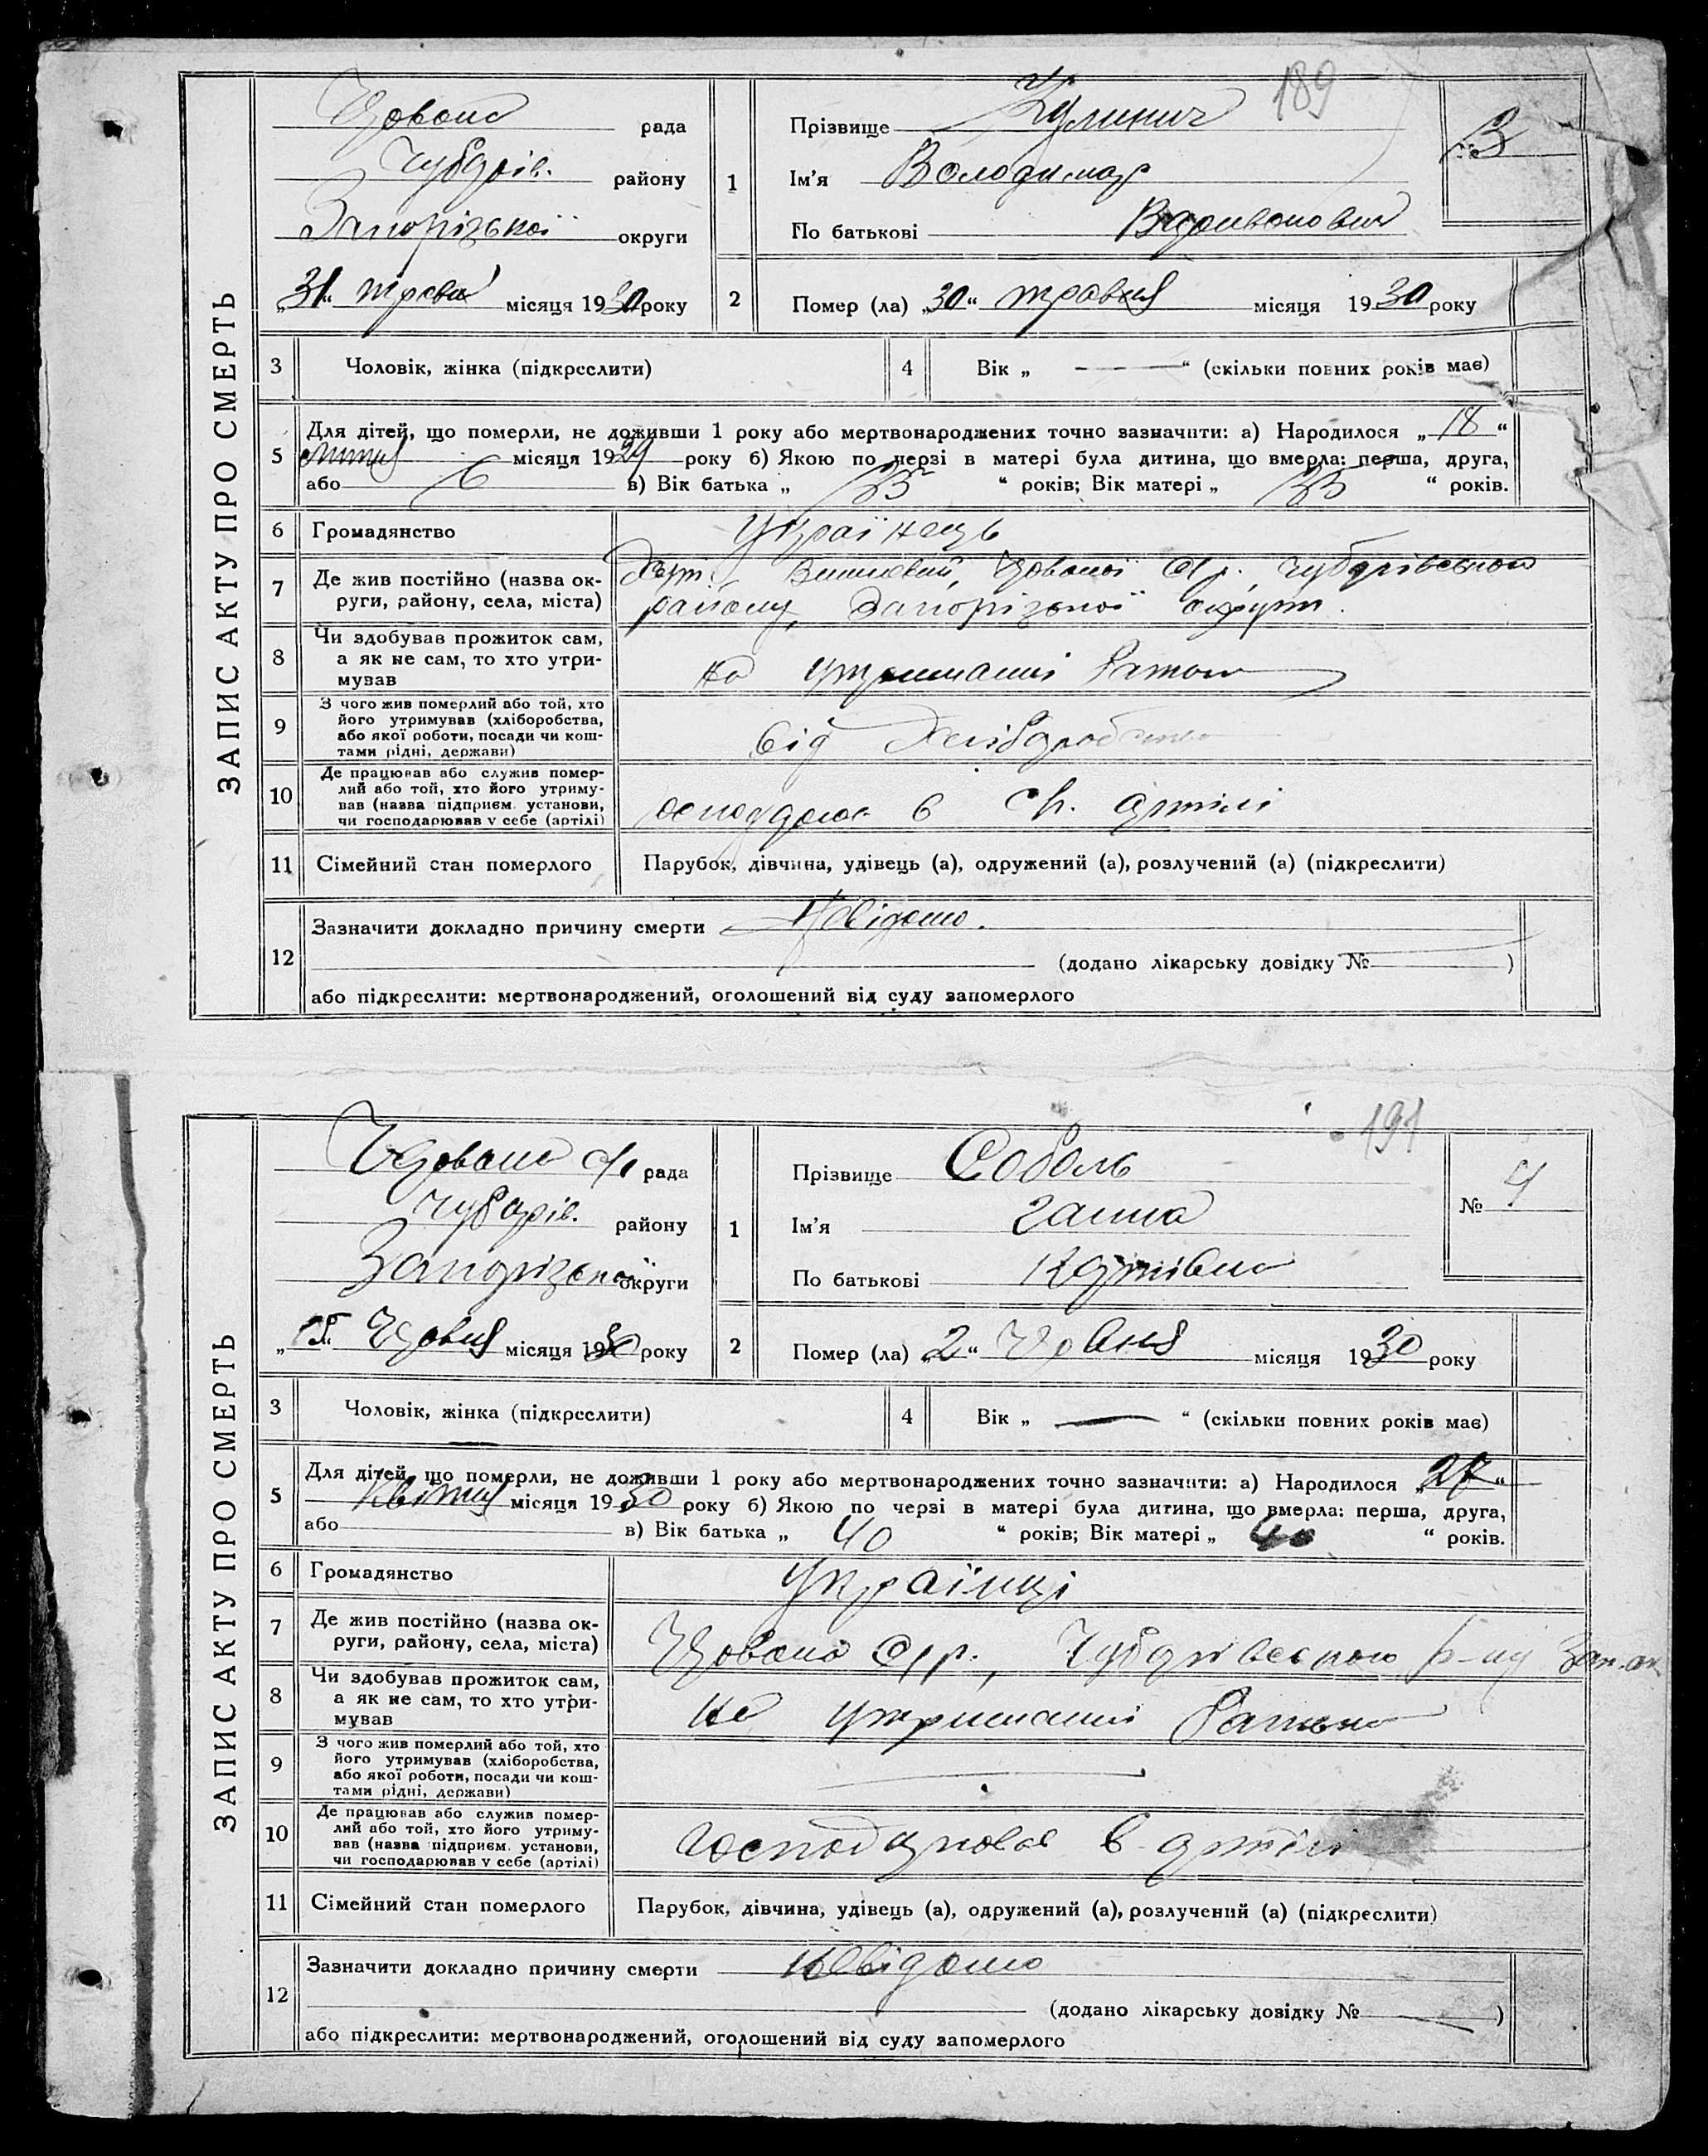 ЗАПИС АКТУ ПРО СМЕРТЬ
189
рада
Чубарів. району
Запорізької округи
„31“ травня місяця 1930 року
1
Прізвище Кулинич
Ім'я Володимир
По батькові
№ 3
2
Помер (ла) „30“ травня місяця 1930 року
3
Чоловік, жінка (підкреслити)
4
Вік „ — “ (скільки повних років має)
5
Для дітей, що померли, не доживши 1 року або мертвонароджених точно зазначити: а) Народилося „18“
місяця 1929 року б) Якою по черзі в матері була дитина, що вмерла: перша, друга,
або 6 в) Вік батька „ 35 “ років; Вік матері „ 35 “ років.
6
Громадянство
Українець
7
Де жив постійно (назва округи, району, села, міста)
Чубарівського
району, Запорізької округи.
8
Чи здобував прожиток сам, а як не сам, то хто утримував
на утриманні батька
9
З чого жив померлий або той, хто його утримував (хліборобства, або якої роботи, посади чи коштами рідні, держави)
від хліборобства
10
Де працював або служив померлий або той, хто його утримував (назва підприєм. установи, чи господарював у себе (артілі)
в с/г. артілі
11
Сімейний стан померлого
Парубок, дівчина, удівець (а), одружений (а), розлучений (а) (підкреслити)
12
Зазначити докладно причину смерти Невідомо.
(додано лікарську довідку № )
або підкреслити: мертвонароджений, оголошений від суду запомерлого
ЗАПИС АКТУ ПРО СМЕРТЬ
191
рада
Чубарів. району
Запорізької округи
Червня місяця 1930 року
1
Прізвище Соболь
Ім'я Ганна
По батькові Карпівна
№ 4
2
Помер (ла) „2“ Червня місяця 1930 року
3
Чоловік, жінка (підкреслити)
4
Вік „ — “ (скільки повних років має)
5
Для дітей, що померли, не доживши 1 року або мертвонароджених точно зазначити: а) Народилося „27“
Квітня місяця 1930 року б) Якою по черзі в матері була дитина, що вмерла: перша, друга,
або в) Вік батька „ 40 “ років; Вік матері „ 40 “ років.
6
Громадянство
Українці
7
Де жив постійно (назва округи, району, села, міста)
Чубарівського р-ну Зап. ок.
8
Чи здобував прожиток сам, а як не сам, то хто утримував
на утриманні батька
9
З чого жив померлий або той, хто його утримував (хліборобства, або якої роботи, посади чи коштами рідні, держави)
10
Де працював або служив померлий або той, хто його утримував (назва підприєм. установи, чи господарював у себе (артілі)
в артілі
11
Сімейний стан померлого
Парубок, дівчина, удівець (а), одружений (а), розлучений (а) (підкреслити)
12
Зазначити докладно причину смерти невідомо
(додано лікарську довідку № )
або підкреслити: мертвонароджений, оголошений від суду запомерлого